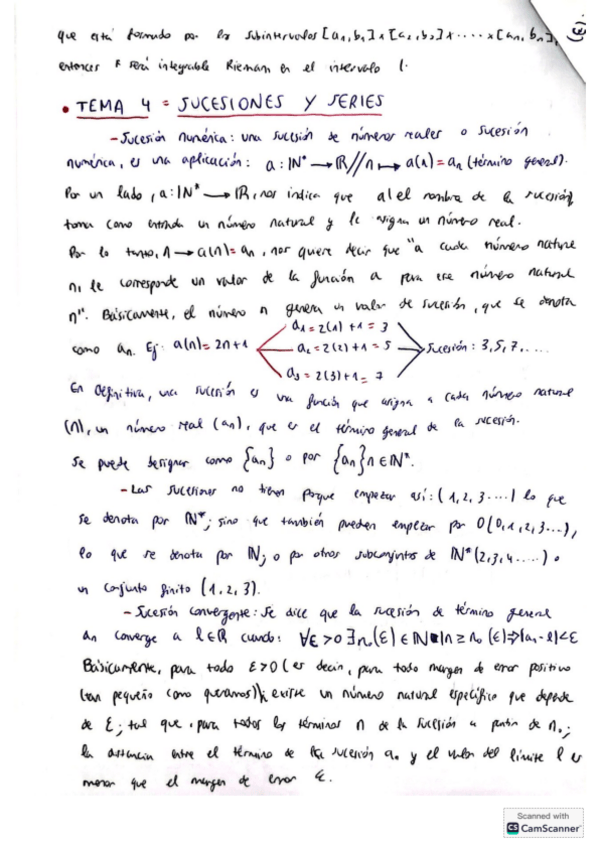 que está formado por los subintervalos [a₁, b₁] x [a₂, b₂] x ..... x [aₙ, bₙ],
(3)
entonces f será integrable Riemann en el intervalo I.
• TEMA 4 = SUCESIONES Y SERIES
- Sucesión numérica: una sucesión de números reales o sucesión
numérica, es una aplicación: a: IN* → IR // n ↦ a(n) = aₙ (término general).
Por un lado, a: IN* → IR, nos indica que a (el nombre de la sucesión)
toma como entrada un número natural y le asigna un número real.
Por lo tanto, n → a(n) = aₙ, nos quiere decir que "a cada número natural
n, le corresponde un valor de la función a para ese número natural
n". Básicamente, el número n genera un valor de sucesión, que se denota
como aₙ. Ej: a(n) = 2n+1
a₁ = 2(1) + 1 = 3
a₂ = 2(2) + 1 = 5
a₃ = 2(3) + 1 = 7
Sucesión: 3, 5, 7, ....
En definitiva, una sucesión es una función que asigna a cada número natural
(n), un número real (aₙ), que es el término general de la sucesión.
Se puede designar como {aₙ} o por {aₙ} n ∈ IN*.
- Las sucesiones no tienen porque empezar así: (1, 2, 3 ....) lo que
se denota por IN*; sino que también pueden empezar por 0 (0, 1, 2, 3...),
lo que se denota por IN; o por otros subconjuntos de IN* (2, 3, 4 .....) o
un conjunto finito (1, 2, 3).
- Sucesión convergente: Se dice que la sucesión de término general
aₙ converge a l ∈ IR cuando: ∀ε > 0 ∃ n₀(ε) ∈ IN | n ≥ n₀(ε) ⇒ |aₙ - l| < ε
Básicamente, para todo ε > 0 (es decir, para todo margen de error positivo
(tan pequeño como queramos)); existe un número natural específico que depende
de ε; tal que, para todos los términos n de la sucesión a partir de n₀;
la distancia entre el término de la sucesión aₙ y el valor del límite l es
menor que el margen de error ε.
Scanned with
CS CamScanner